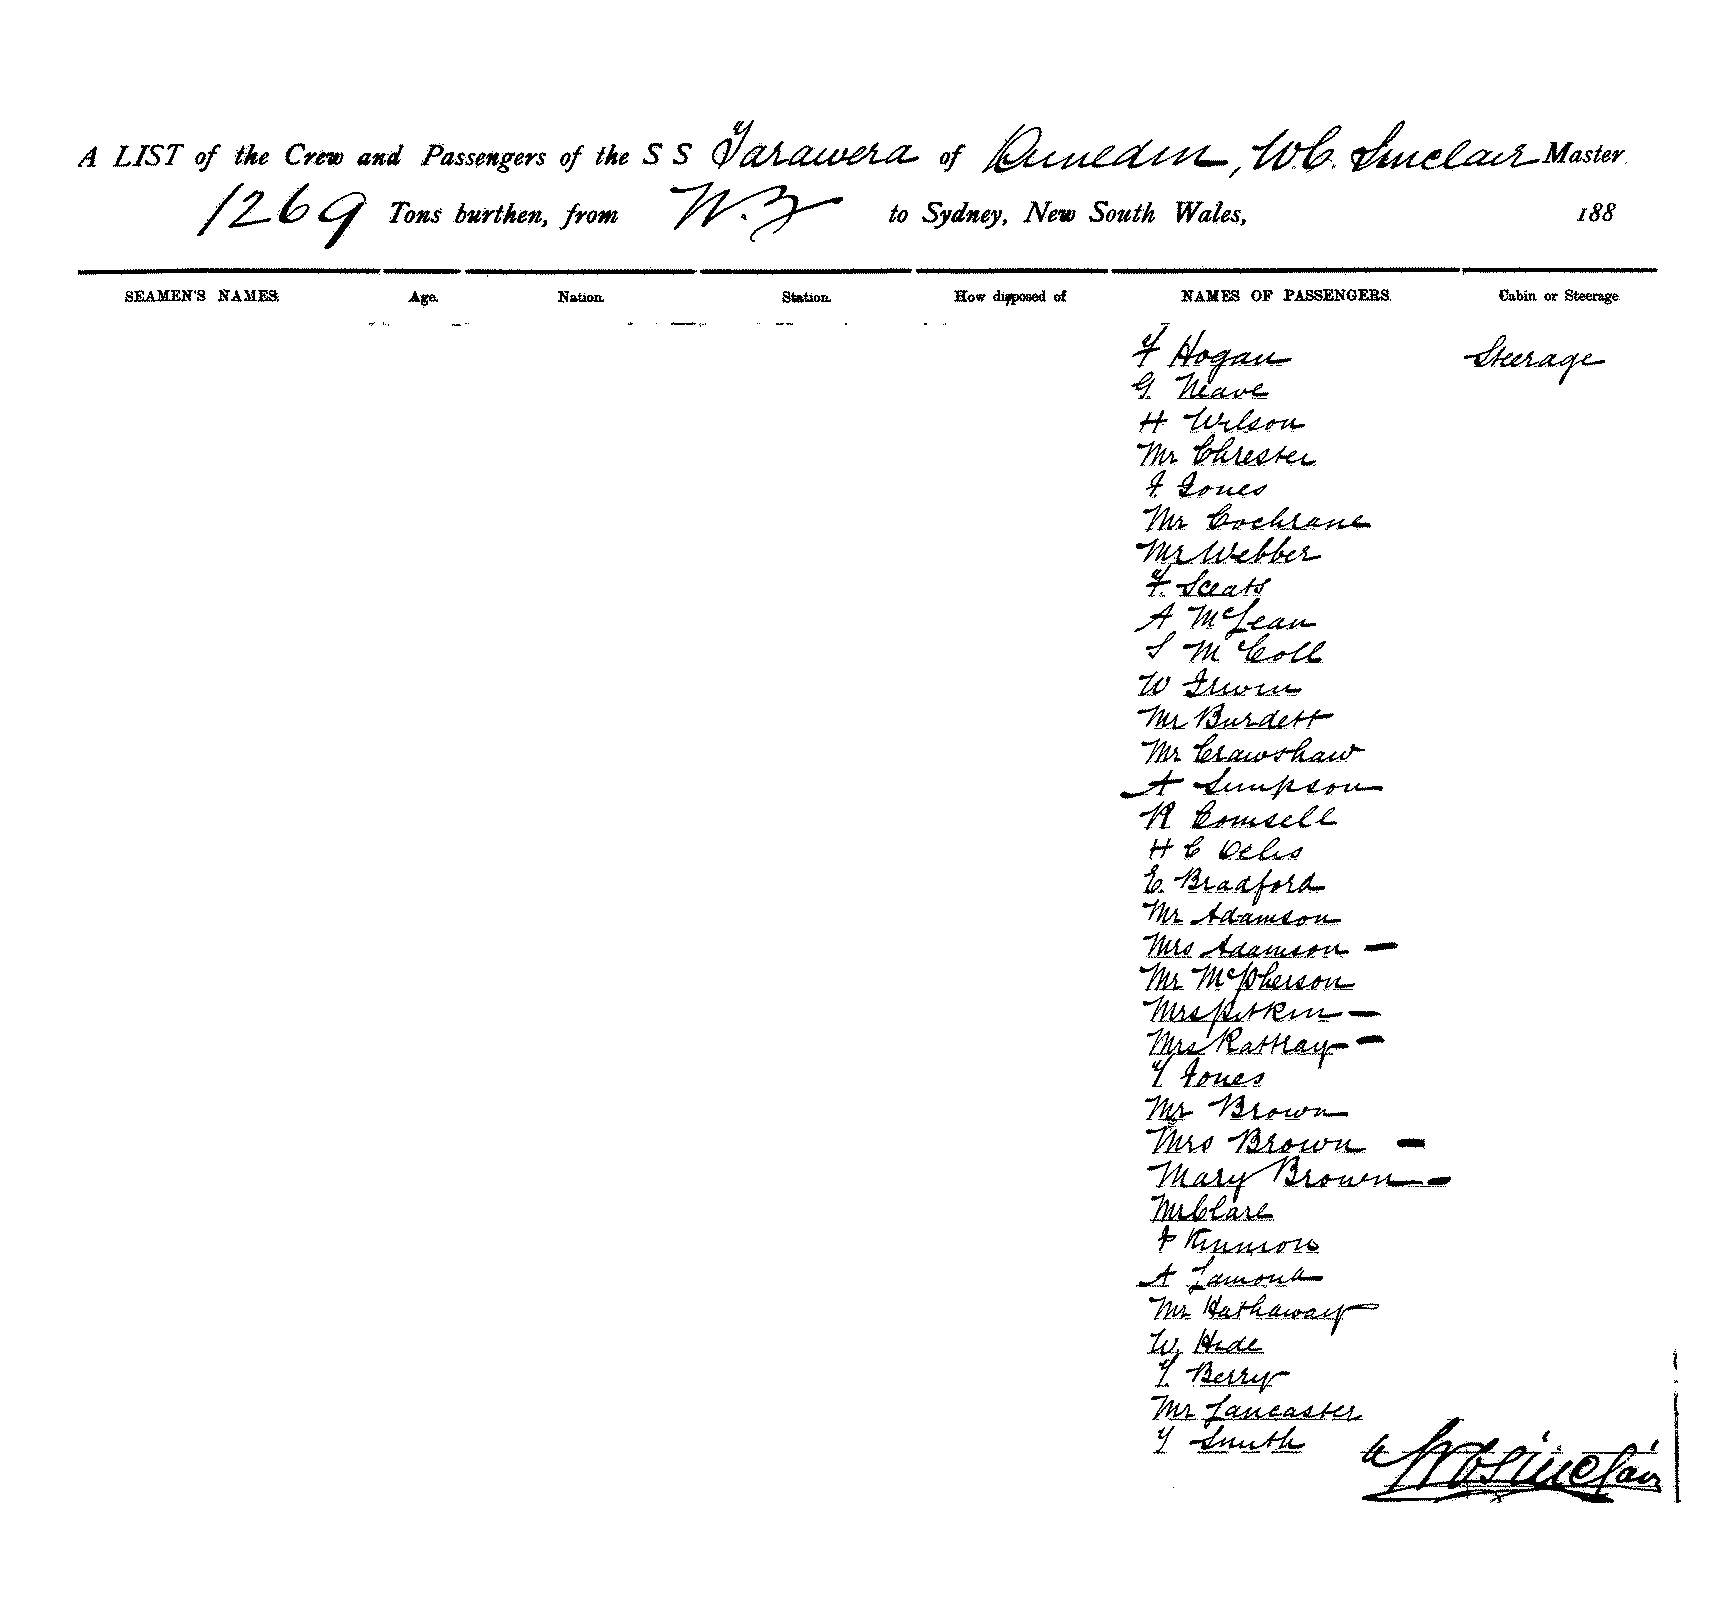 A LIST of the Crew and Passengers of the S S Tarawera of Dunedin, W.C. Sinclair Master
1269 Tons burthen, from N.Z to Sydney, New South Wales, 188
SEAMEN'S NAMES. Age. Nation. Station. How disposed of NAMES OF PASSENGERS. Cabin or Steerage
F Hogan Steerage
G. Neave
H Wilson
Mr
J. Jones
Mr Cochrane
Mr Webber
F. Sceats
A McLean
S McColl
W Irwin
Mr Burdett
Mr Crawshaw
A Simpson
R
H C
E. Bradford
Mr Adamson
Mrs Adamson -
Mr McPherson
Mrs Pitkin -
Mrs Rattray -
T Jones
Mr Brown
Mrs Brown -
Mary Brown -
Mr Clare
J
A Lamond
Mr Hathaway
W. Hide
T. Berry
Mr Lancaster
T Smith
W C Sinclair